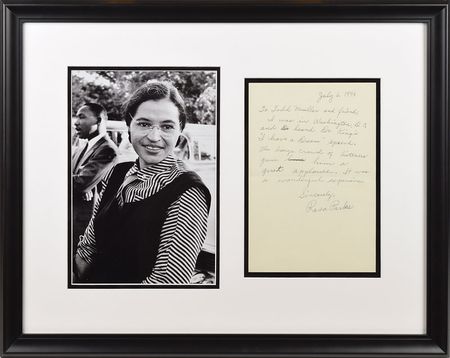 July 6, 1994
To Todd Mueller and friends
I was in Washington, D.C.
and heard Dr. King's
I have a Dream" speech.
the huge crowd of
gave him a
great applause. It was
a wonderful experience
Sincerely,
Rosa Parks